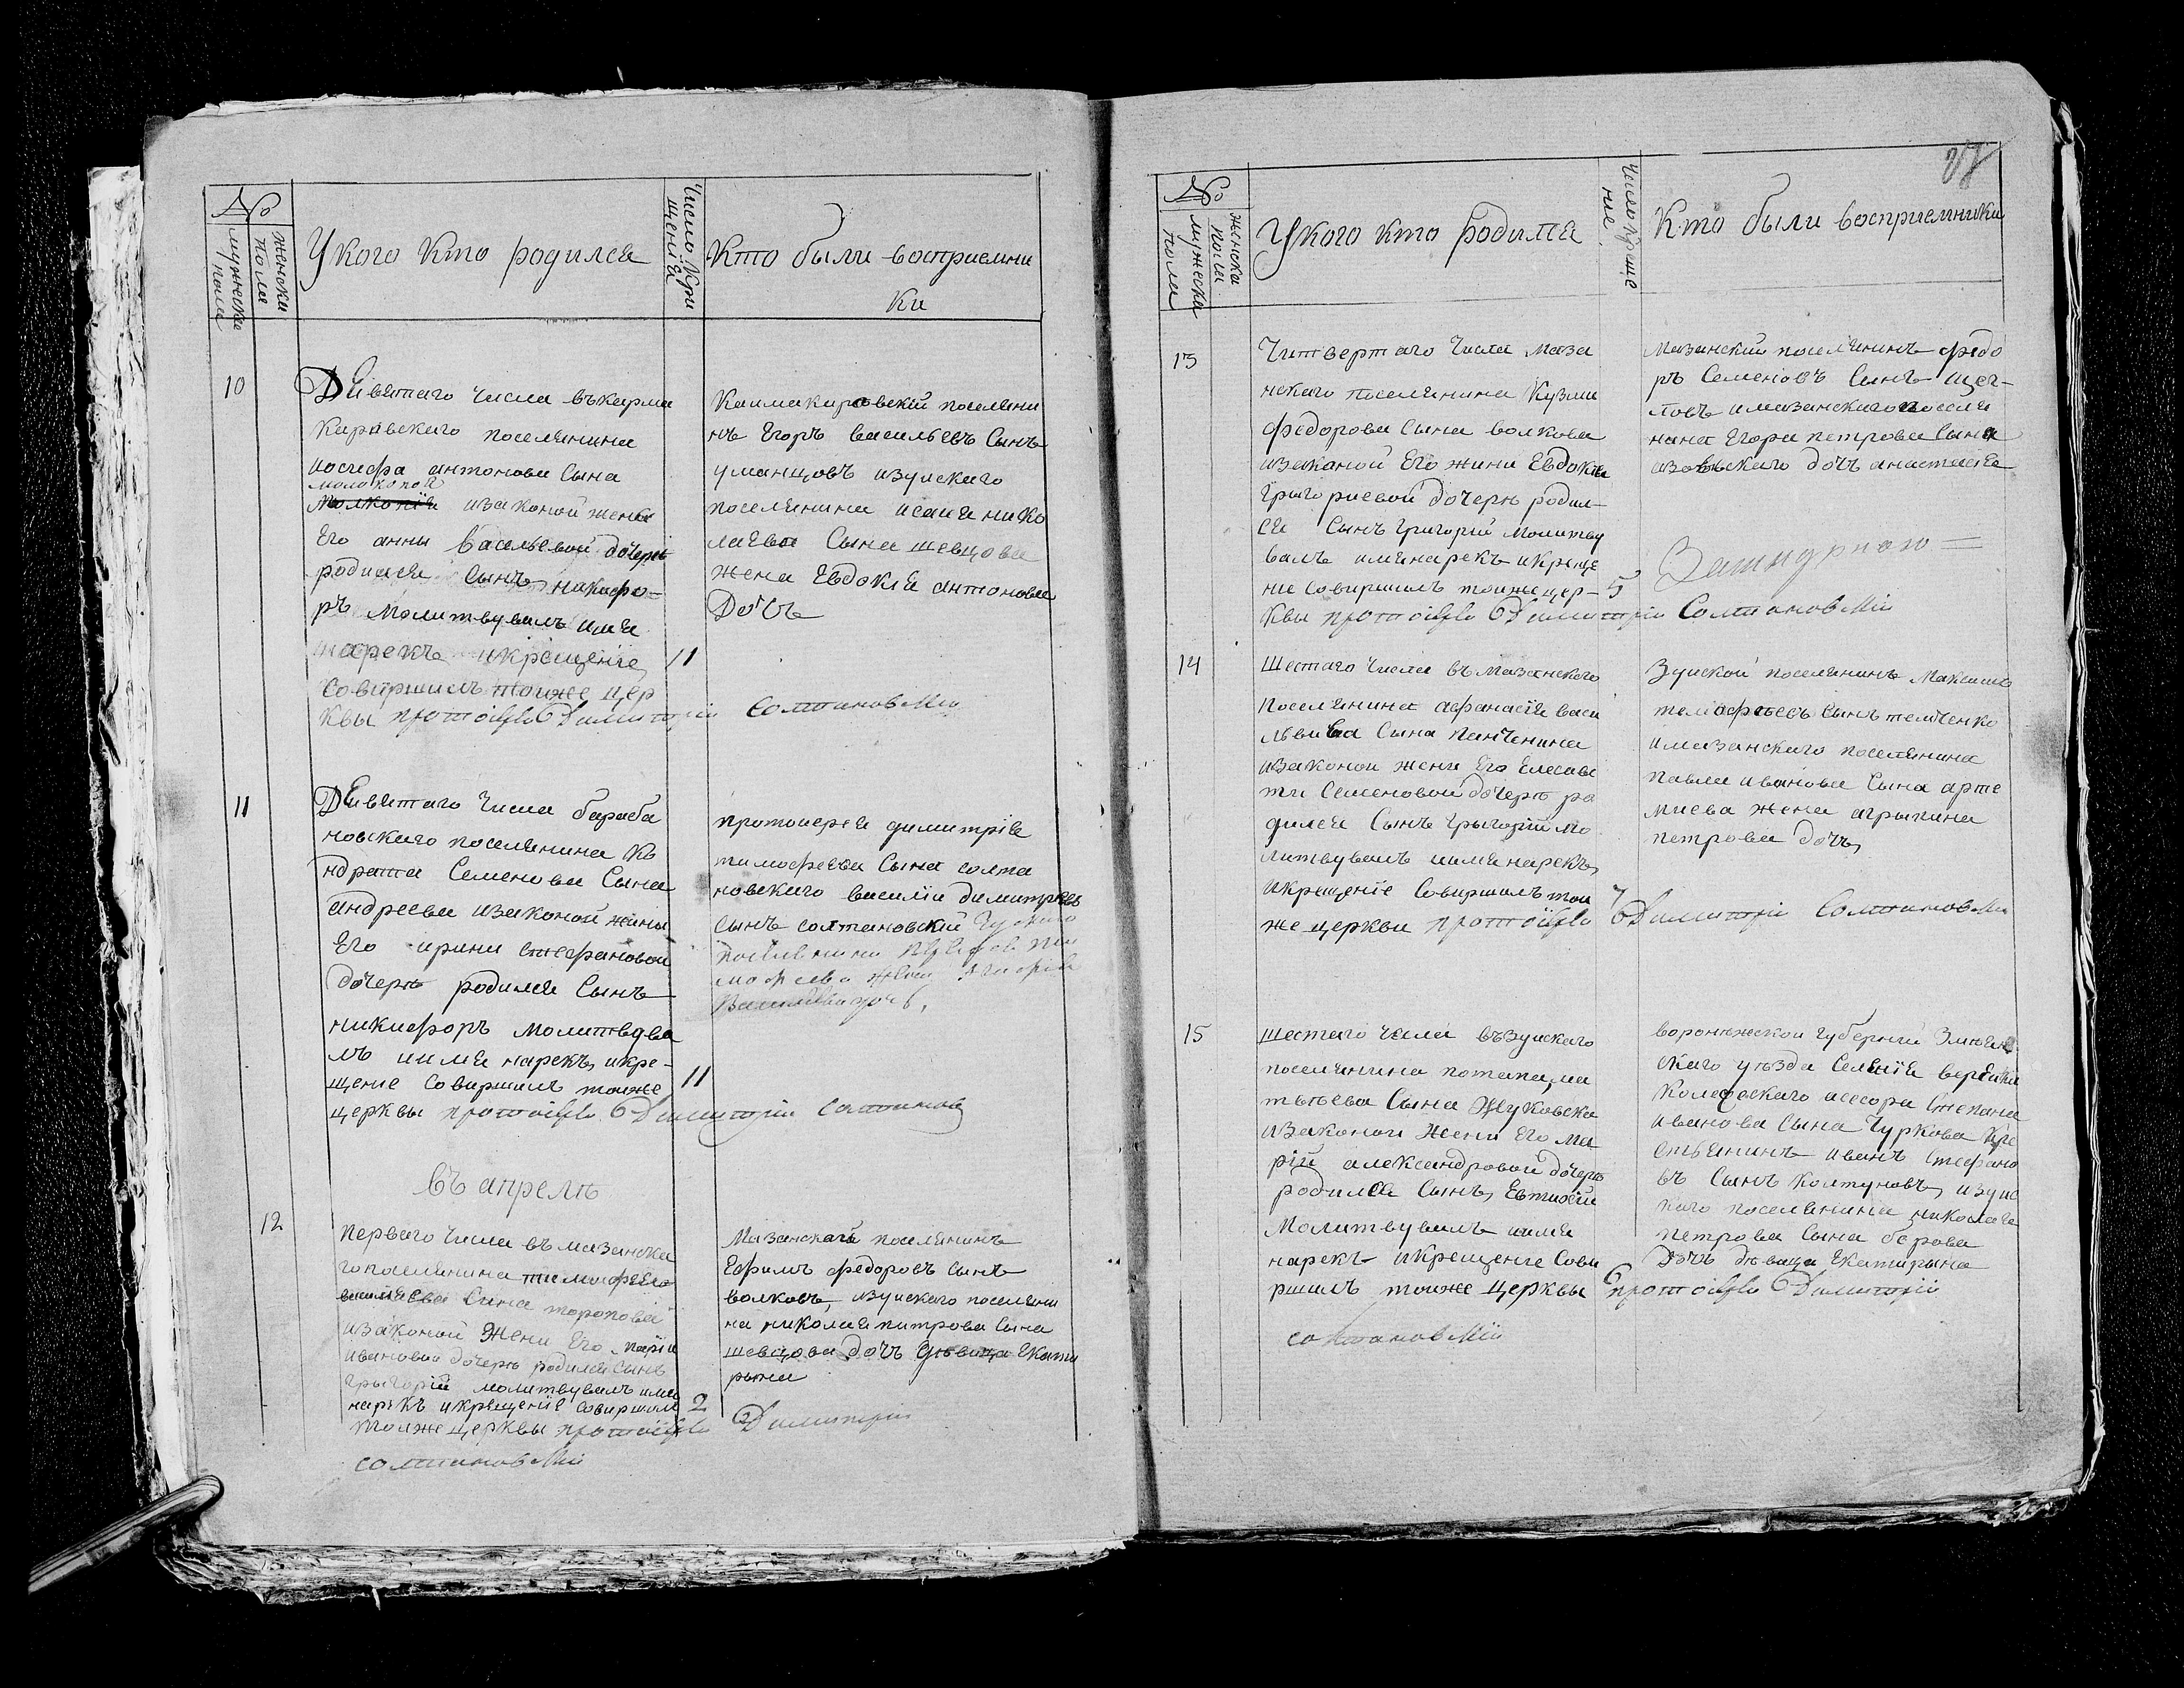 №
мужеска пола
женска пола
У кого кто родился
Число крещенія
Кто были восприемни
ки
10
Дивятаго числа въ
каравскаго поселянина
иосифа антонова сына
изаконой жены
Его анны васельевой дочери
родился сынъ никифо-
ръ молитвувалъ имя
нарекъ икрещеніе
совиршилъ тоиже цер
квы протоиерей Димитрій Солтановскій
11
поселяни
нъ Егоръ васильевъ сынъ
уманцовъ изуискаго
поселянина исаия нико
лаева сына шевцова
жена Евдокія антонова
Дочь
11
Дивятаго числа бараба
новскаго поселянина ко
ндрата Семенова Сына
андреева изаконой жины
Его ирини стефановой
дочери родился Сынъ
никифоръ молитвува
лъ имя нарекъ, икре-
щение совиршилъ тоиже
церквы протоиерей Димитрій
11
протоиерея димитрія
тимофеева Сына солта
новскаго василій димитріевъ
сынъ солтановскій
въ апрелѣ
12
перваго числа въ мазанска
го поселянина тимофея
сына
изаконой жени Его маріи
ивановой дочери родился сынъ
грыгорій молитвувалъ имя
нарекъ икрещеніе совиршилъ
тоиже церквы протоиерей Димитрій
солтановскій
2
Мазанскаго поселянинъ
Ефимъ федоровъ сынъ
волковъ, изуискаго поселяни
на николая питрова сына
шевцова дочъ дѣвица Екати
рына
№
мужеска пола
женска пола
У кого кто родился
Число креще
ние
Кто были восприемники
13
Читвертаго числа маза
нскаго поселянина Кузми
федорова сына волкова
изаконой Его жини Евдокии
григориевой дочери родил-
ся сынъ григорій молитву
валъ имя нарекъ икреще
ние совиршилъ тоиже цер-
квы протоиерей Димитрій Солтановскій
5
мазанский поселянинъ федо
ръ Семеновъ Сынъ щег-
ловъ имазанскаго поселя
нина Егора петрова сына
дочъ анастасия
14
Шестаго числа въ мазанскаго
поселянина афанасия васи
львива Сына панченина
изаконои жени Его Елисаве
ти Семеновой дочери ро
дился Сынъ грыгорій мо
литвувалъ имя нарекъ,
икрещеніе Совиршилъ тои
же церквы протоиерей Димитрій Солтановскій
7
Зуйской поселянинъ Максимъ
сынъ темченко
имазанскаго поселянина
павла иванова Сына арте
миева жена агрыпина
петрова дочъ,
15
шестаго числа въ зуискаго
поселянина потапа, ма
твѣева Сына Жуковска
изаконои жени Его ма
рій александровой дочери
родился Сынъ, Евтихій
молитвувалъ имя
нарекъ икрещение Сови
ршилъ тоиже церквы протоиерей Димитрій
солтановскій
6
воронѣжской губерній
скаго уѣзда Селенія
Колежскаго асесора Степана
иванова сына Чуркова кре
стьянинъ иванъ стефано
въ Сынъ Колтуновъ, изуис
каго поселянина николая
петрова Сына борова
Дочъ дѣвица Екатирына